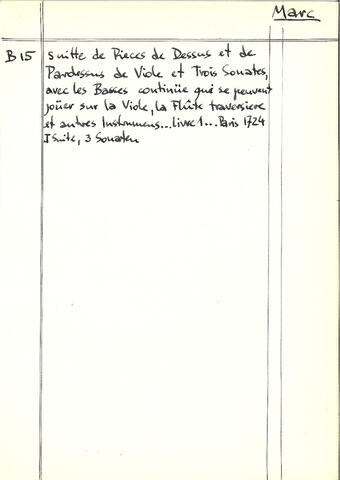 Marc
B 15 Suitte de Pieces de Dessus et de
Pardessus de Viole et Trois Sonates,
avec les Basses continüe qué se peuvent
joüer sur la Viole, la Flûte traversiere
et autres Instrumens...Livre 1...Paris 1724
I Suite, 3 Sonaten